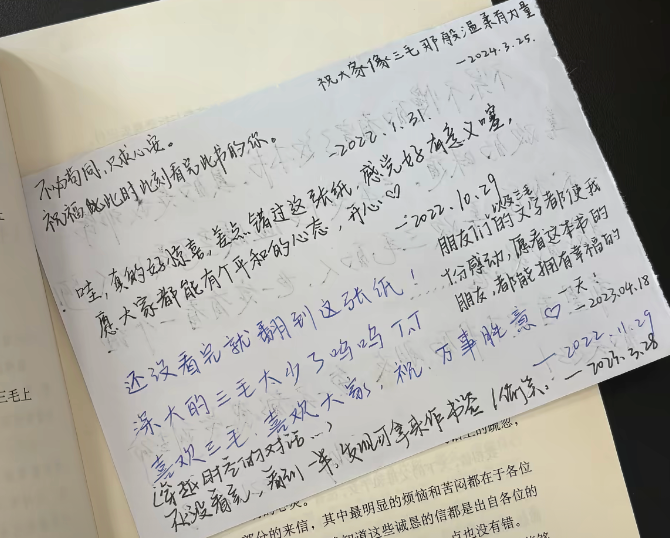 祝大家像三毛那般温柔有力量
—2024.3.25.
不必尚同,只求心安。
祝福能此时此刻看完此书的你。
—2022.1.31.
哇,真的好惊喜,差点错过这张纸,感觉好有意义噻,
愿大家都能有个平和的心态,开心♡
—2022.10.29
朋友们的文字都使我
以及三毛
十分感动,愿看这本书的
朋友,都能拥有幸福的
一天!
—2023.04.18
还没看完就翻到这张纸!
深大的三毛太少了呜呜TAT
喜欢三毛,喜欢大家,祝,万事胜意♡
—2022.11.29
(穿越时空的对话...)
还没看完,看到一半,发现可拿来作书签
—2023.3.28
三毛上
部分的来信,其中最明显的烦恼和苦闷都在于各位
知道这些诚恳的信都是出自各位的
点也没有错。